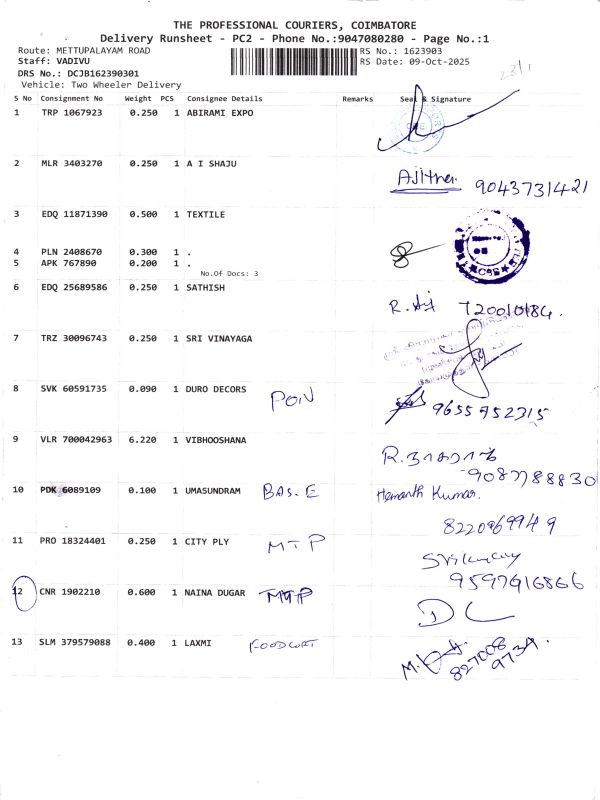 THE PROFESSIONAL COURIERS, COIMBATORE
Delivery Runsheet - PC2 - Phone No.:9047080280 - Page No.:1
Route: METTUPALAYAM ROAD RS No.: 1623903
Staff: VADIVU RS Date: 09-Oct-2025
DRS No.: DCJB162390301
Vehicle: Two Wheeler Delivery
S No Consignment No Weight PCS Consignee Details Remarks Seal & Signature
1 TRP 1067923 0.250 1 ABIRAMI EXPO
2 MLR 3403270 0.250 1 A I SHAJU
9043731421
3 EDQ 11871390 0.500 1 TEXTILE
4 PLN 2408670 0.300 1 .
5 APK 767890 0.200 1 .
No.Of Docs: 3
6 EDQ 25689586 0.250 1 SATHISH
7 TRZ 30096743 0.250 1 SRI VINAYAGA
8 SVK 60591735 0.090 1 DURO DECORS
9655952315
9 VLR 700042963 6.220 1 VIBHOOSHANA
10 PDK 6089109 0.100 1 UMASUNDRAM BAS. E Hemanth Kumar.
8220969949
11 PRO 18324401 0.250 1 CITY PLY MTP
9597616866
12 CNR 1902210 0.600 1 NAINA DUGAR MTP
13 SLM 379579088 0.400 1 LAXMI